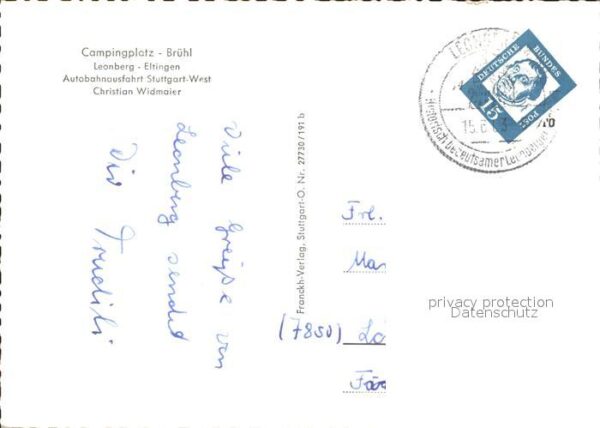 Campingplatz - Brühl
Leonberg - Eltingen
Autobahnausfahrt Stuttgart-West
Christian Widmaier
Viele Grüße von
Leonberg sendet
Die Trudili
Franckh-Verlag, Stuttgart-O. Nr. 27730/191 b
DEUTSCHE BUNDES POST
15
LEONBERG
15.6.63
Historisch bedeutsamer
Frl.
Ma
(7850) Lö
Fä
privacy protection
Datenschutz